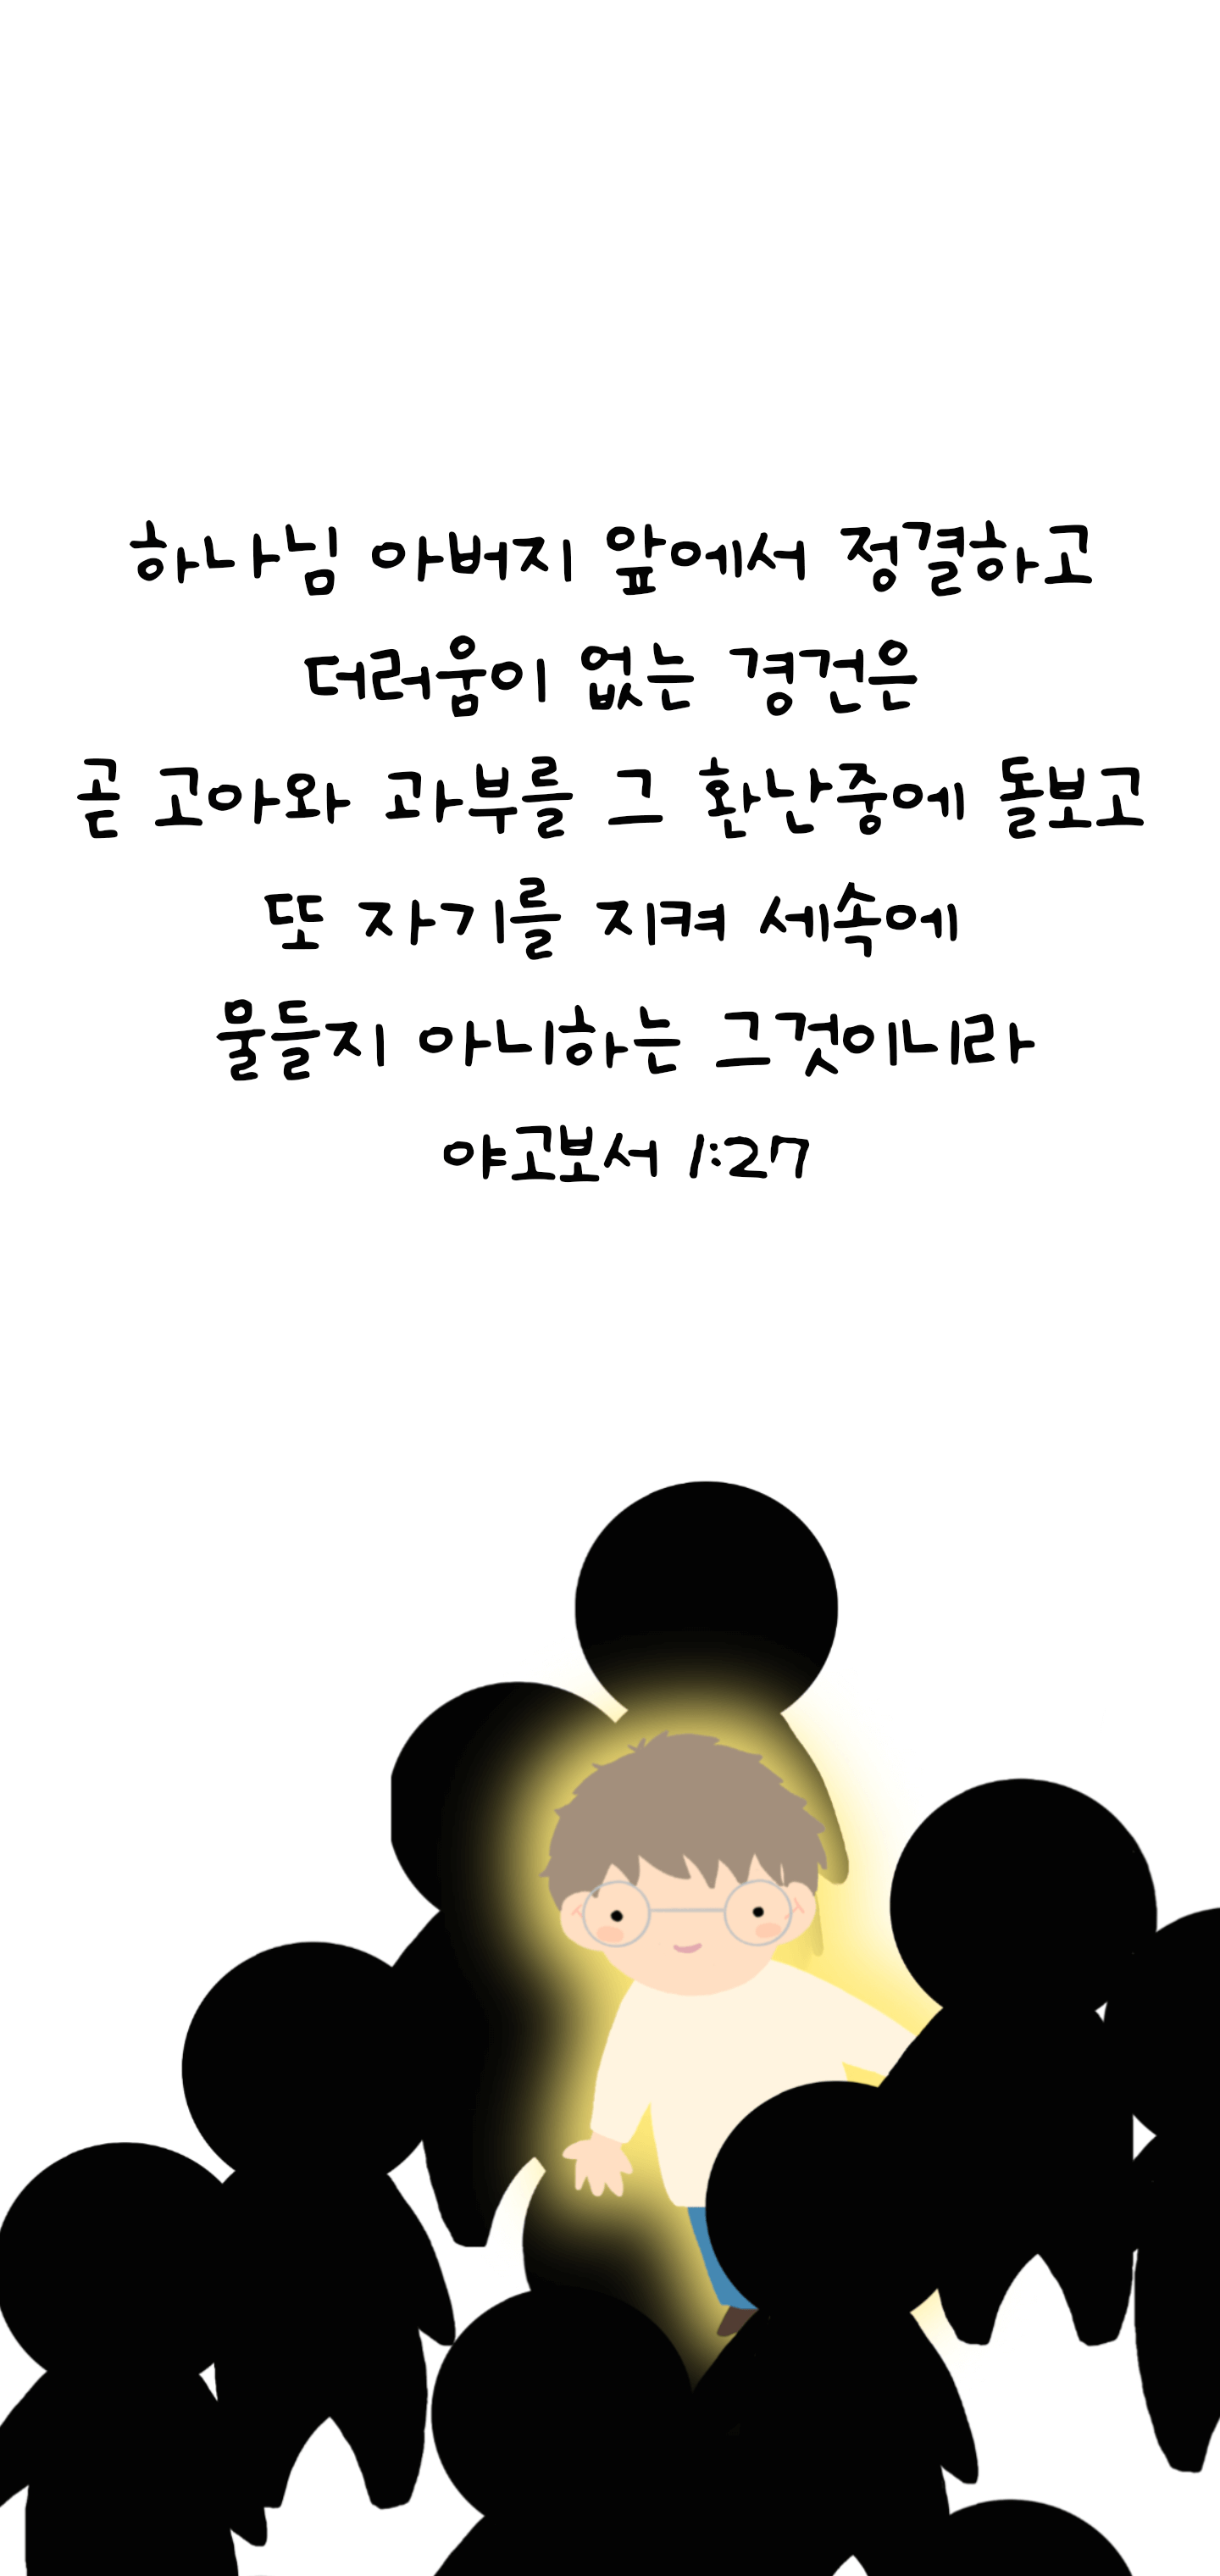 하나님 아버지 앞에서 정결하고
더러움이 없는 경건은
곧 고아와 과부를 그 환난중에 돌보고
또 자기를 지켜 세속에
물들지 아니하는 그것이니라
야고보서 1:27